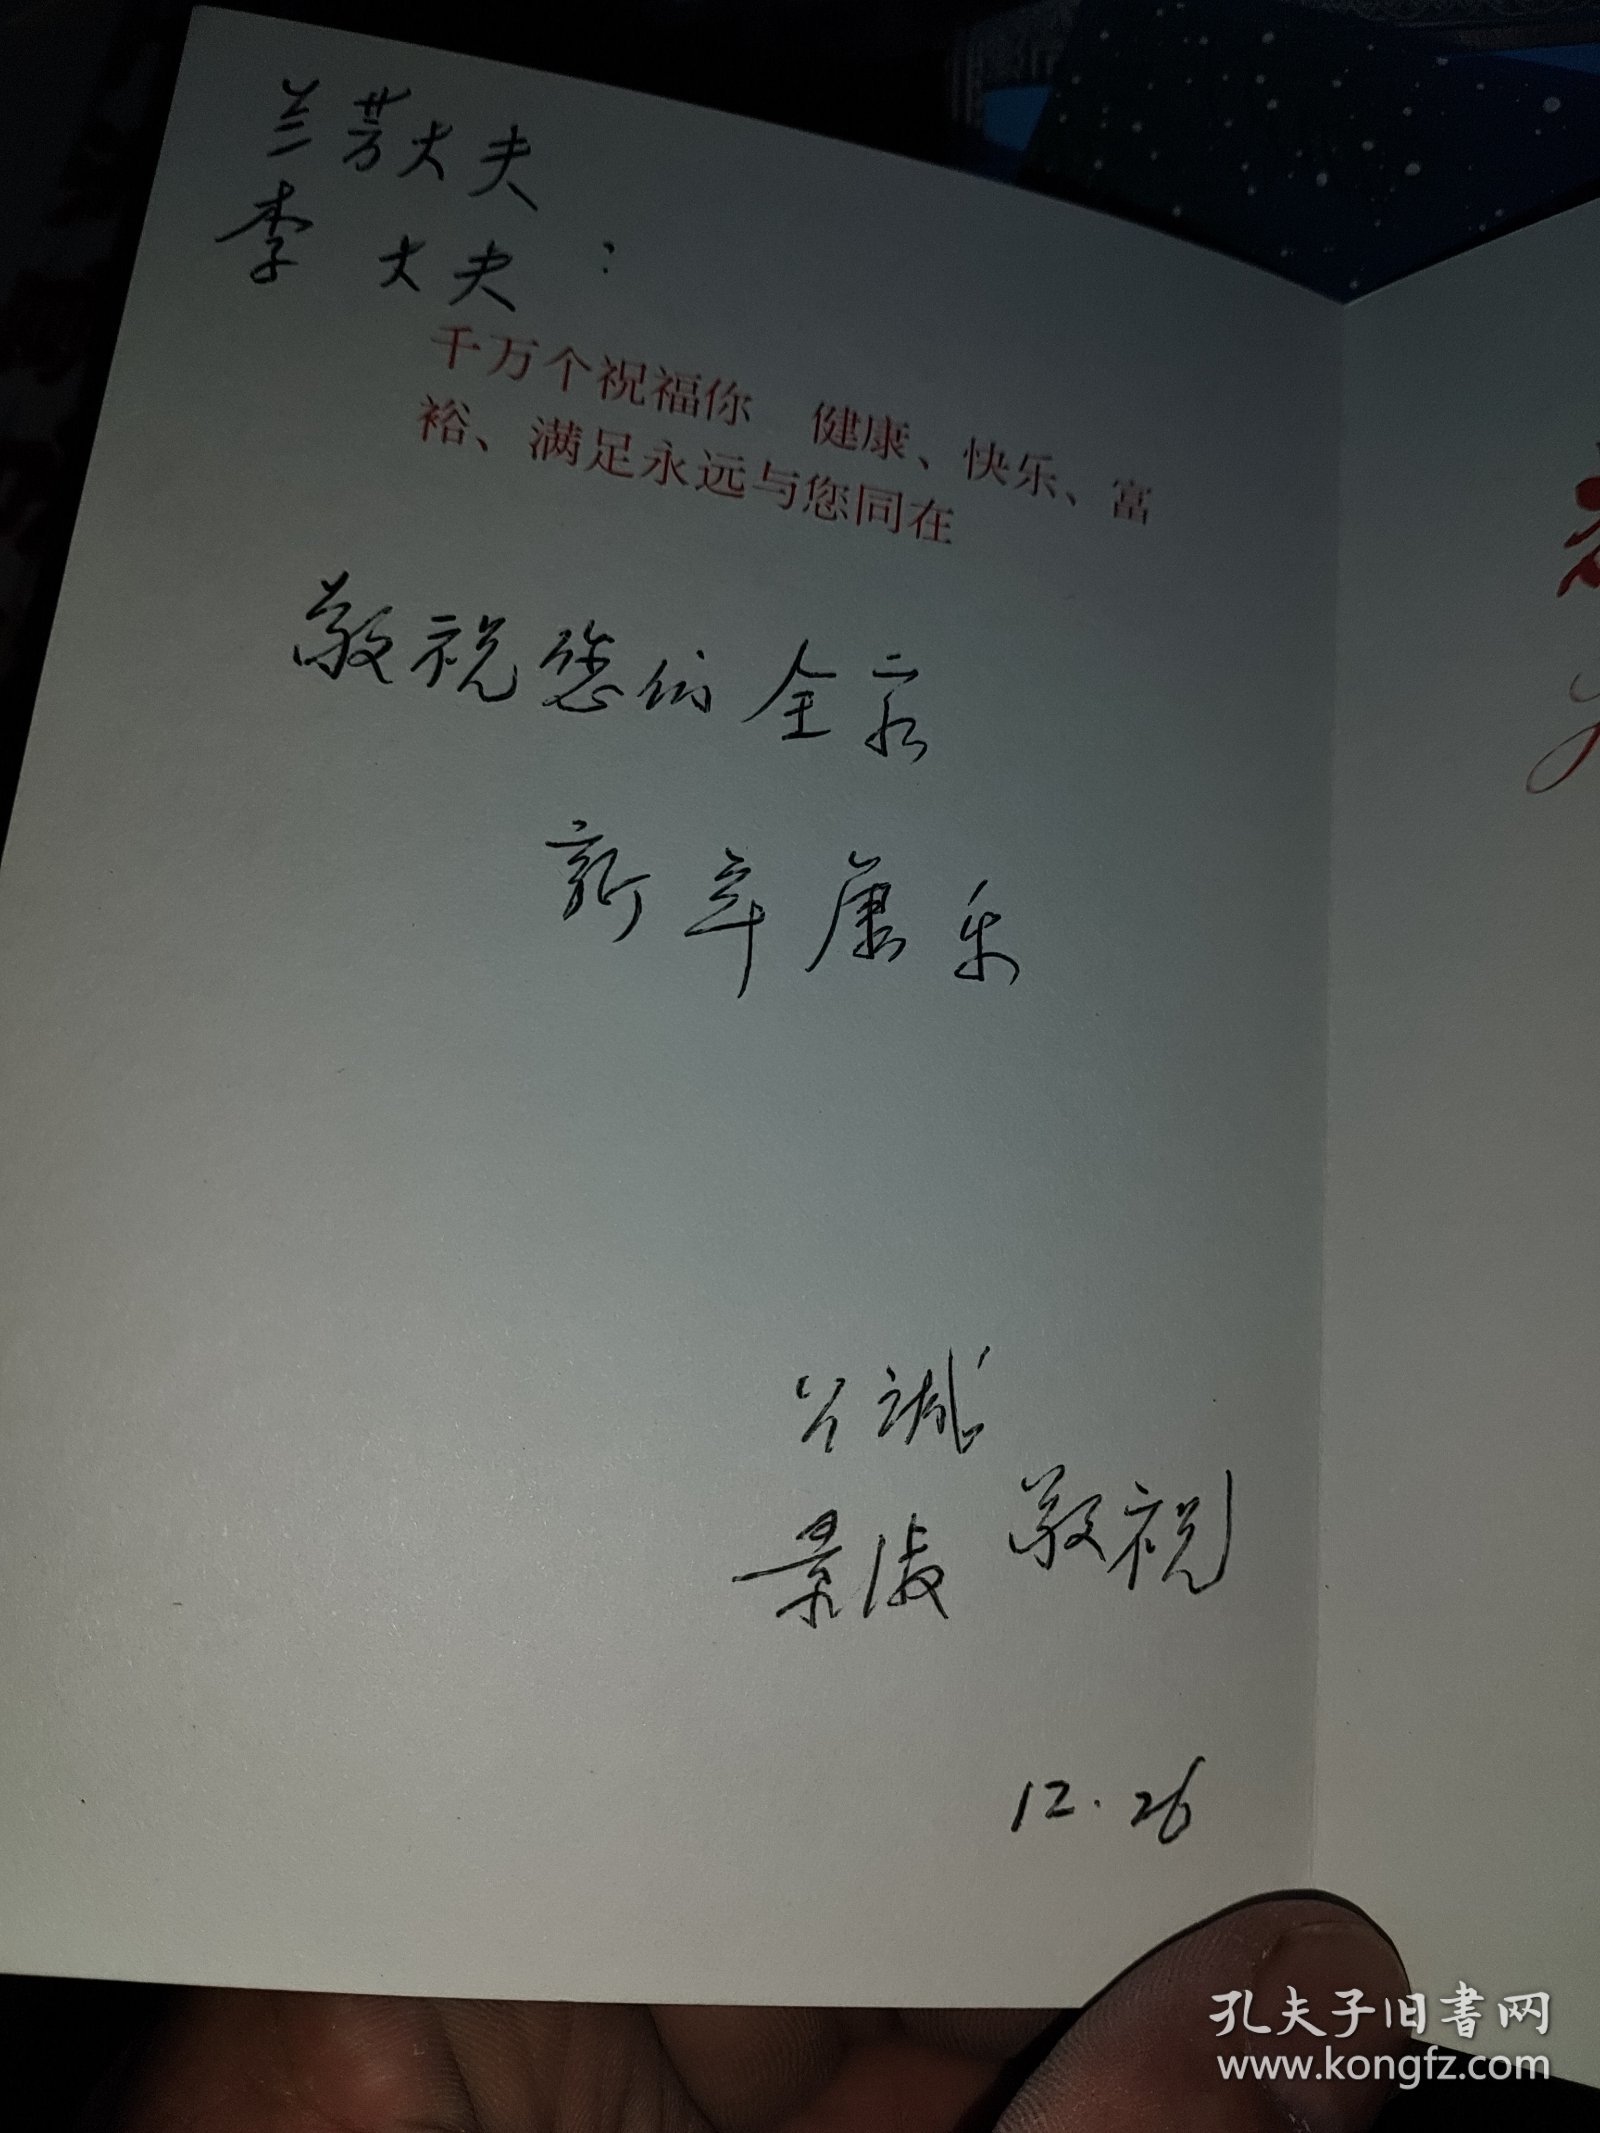 兰芳大夫
李 大夫：
千万个祝福你 健康、快乐、富
裕、满足永远与您同在
敬祝您们全家
新年康乐
诚
景淑 敬祝
12.26
孔夫子旧书网
www.kongfz.com